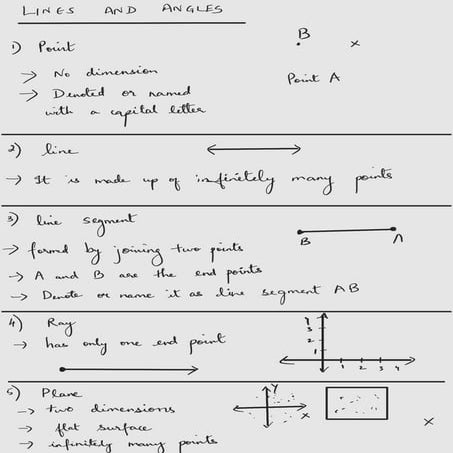 LINES AND ANGLES
1) Point
B
x
→ No dimension
Point A
→ Denoted or named
with a capital letter
2) line
→ It is made up of infinetely many points
3) line segment
B A
→ formed by joining two points
→ A and B are the end points
→ Denote or name it as line segment AB
4) Ray
→ has only one end point
Y
3
2
1
1 2 3 4
5) Plane
Y
→ two dimensions
X
→ flat surface
x
→ infinitely many points